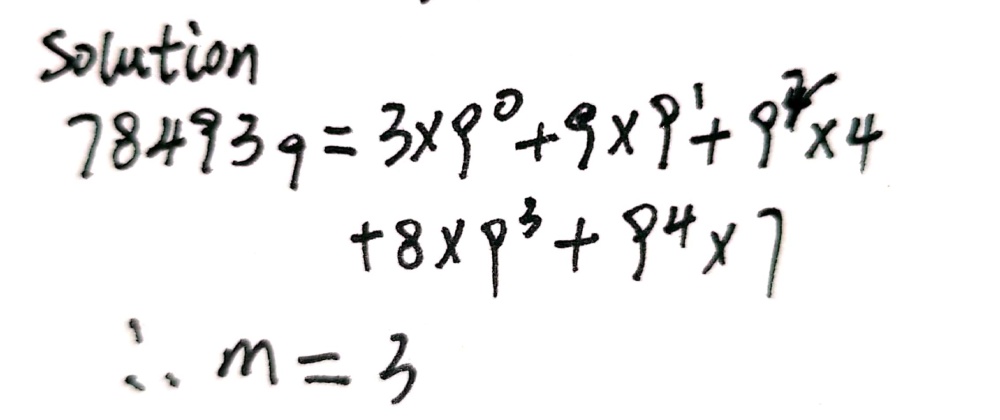 Solution
78493₉ = 3x9⁰+9x9¹+9²x4
+8x9³+94x7
∴ m = 3